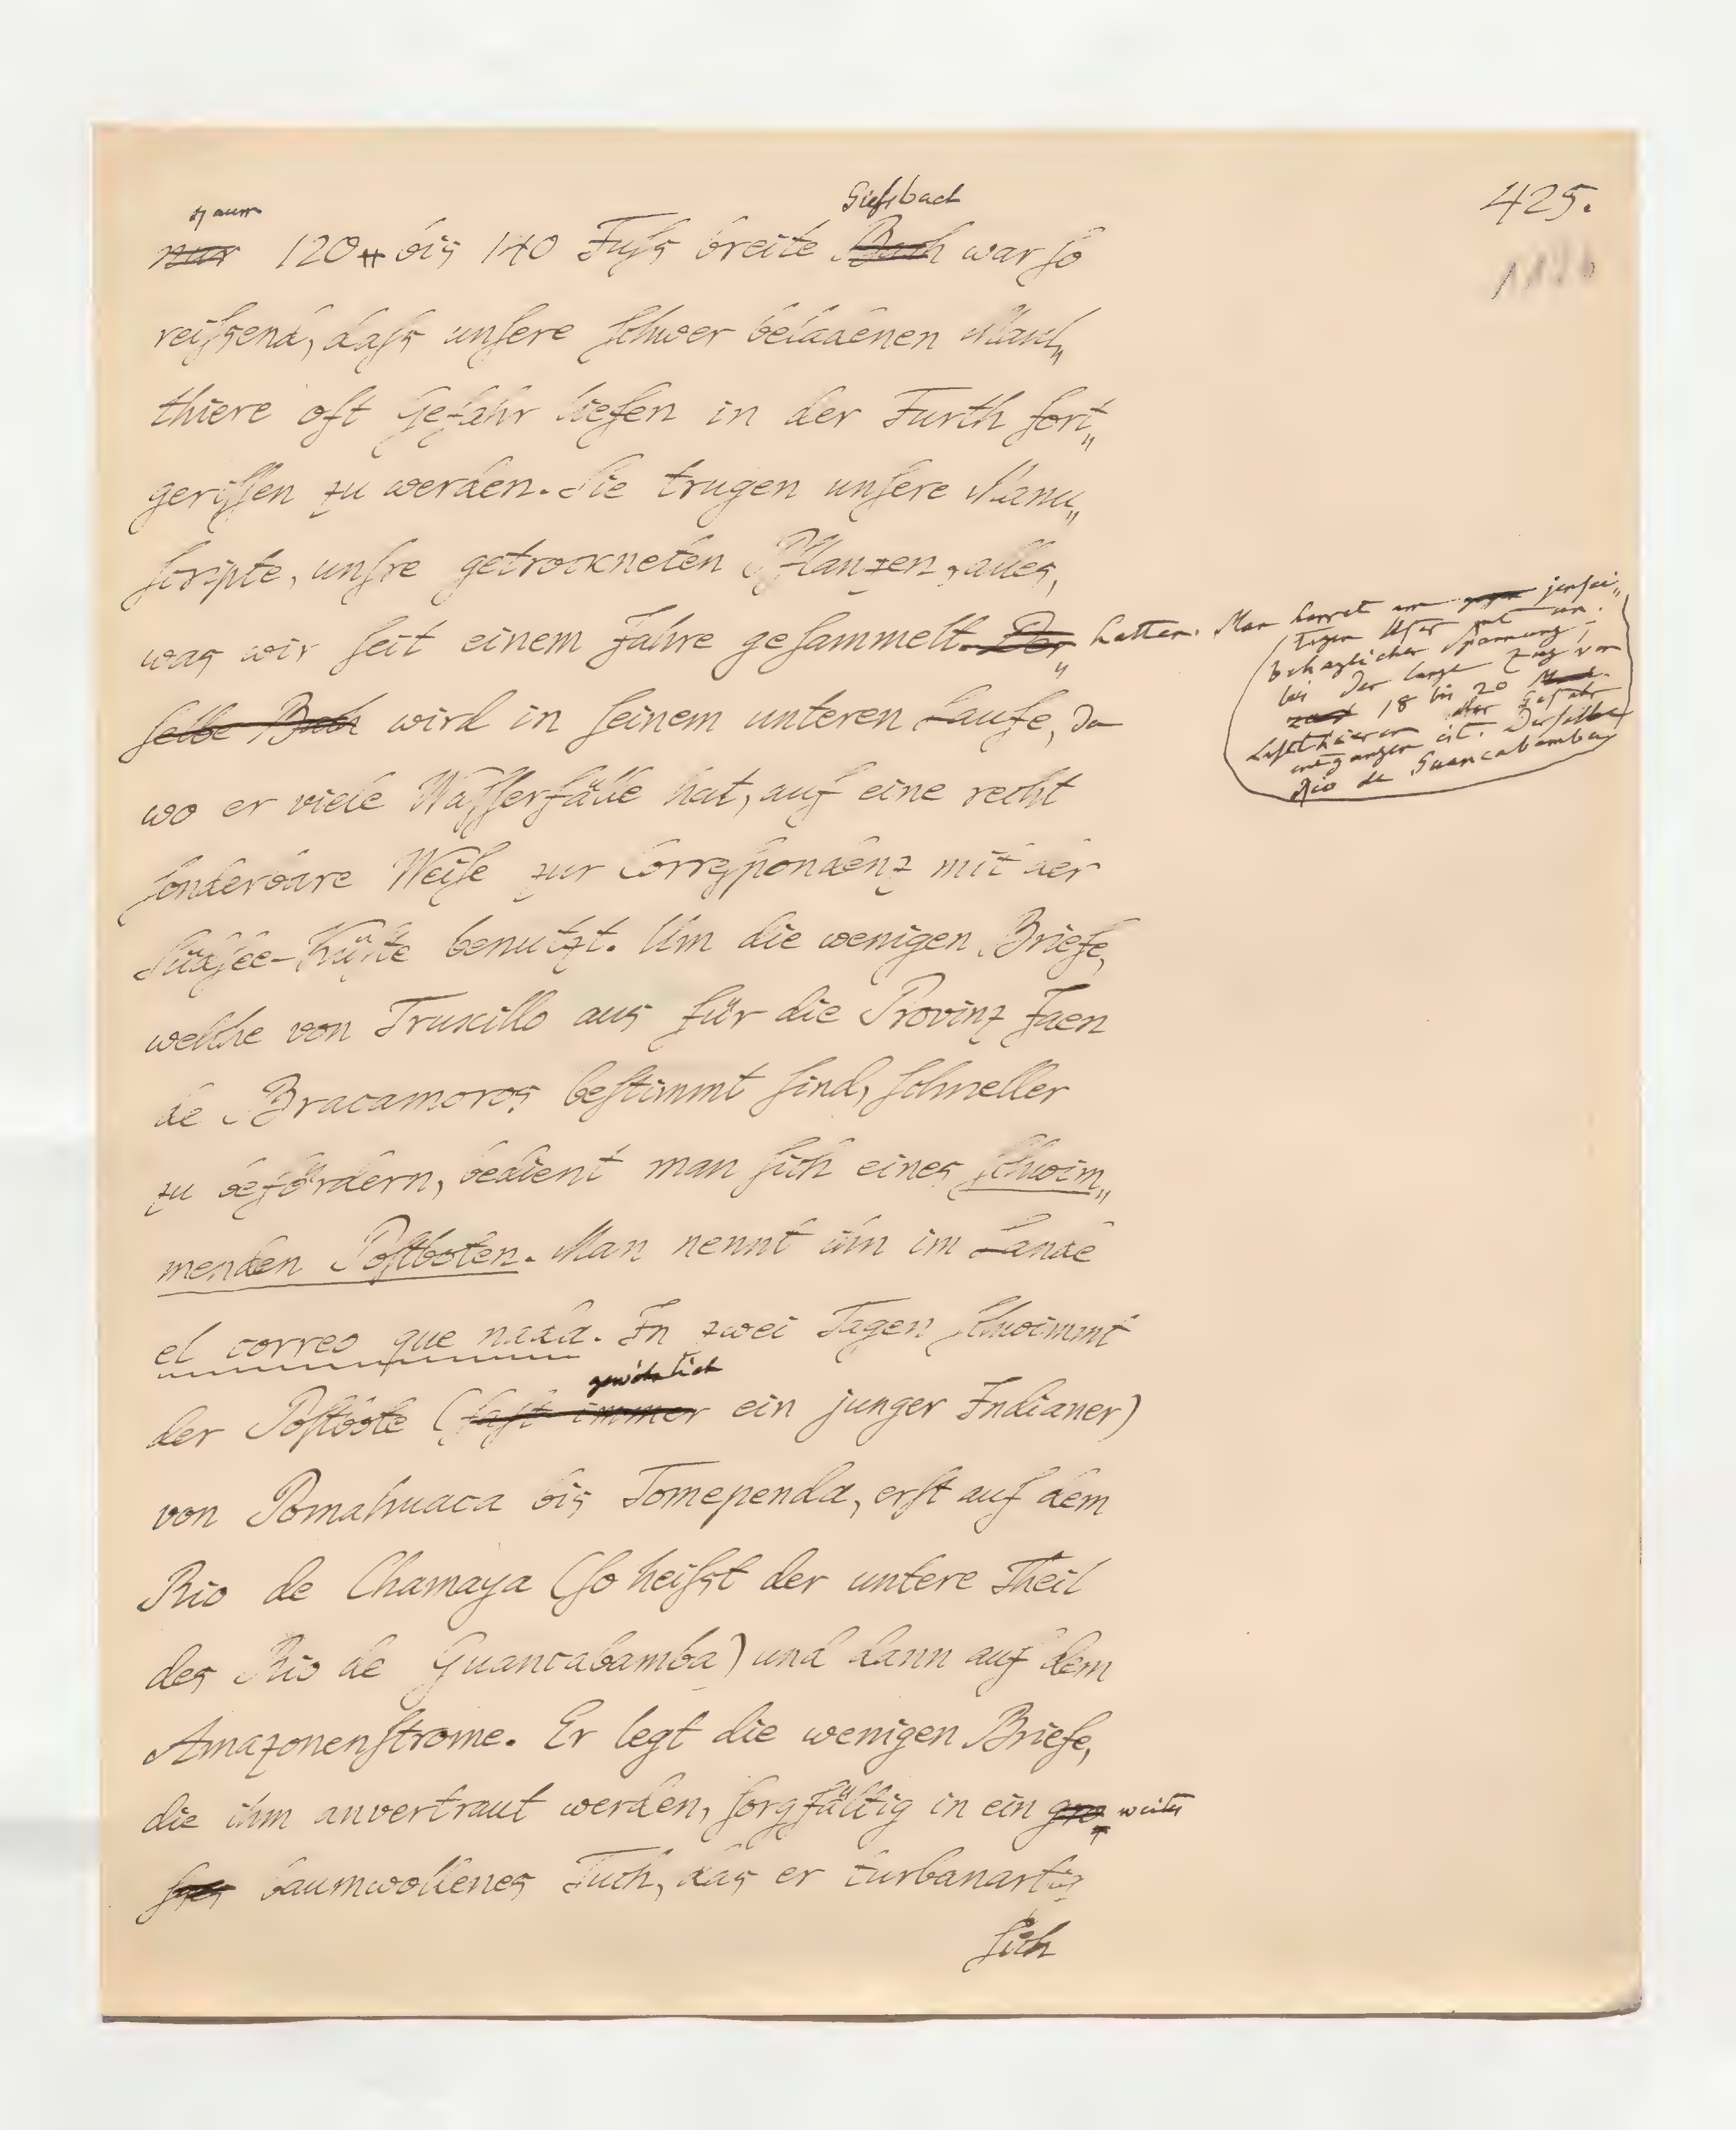 425.
kaum Giefsbach
nur 120 bis 140 Fuſs breite Bach war ſo
reiſsend, daſs unſere ſchwer beladenen Maul„
thiere oft Gefahr liefen in der Furth fort„
geriſſen zu werden. Sie trugen unſere Manu„
ſcripte, unſre getrockneten Pflanzen, alles,
was wir ſeit einem Jahre geſammelt. Der„ hatten. Man harret am jenſei„
tigen Ufer mit un„
behaglicher Spannung,
bis der lange Zug von
18 bis 20
Laſtthieren der Gefahr
entgangen ist. Derſelbe
Rio de Guancabamba
ſelbe Bach wird in ſeinem unteren Laufe, da
wo er viele Waſſerfälle hat, auf eine recht
ſonderbare Weiſe zur Correſpondenz mit der
Südſee-Küſte benutzt. Um die wenigen Briefe,
welche von Truxillo aus für die Provinz Jaen
de Bracamoros beſtimmt ſind, ſchneller
zu befördern, bedient man ſich eines ſchwim„
menden Poſtboten. Man nennt ihn im Lande
el correo que nada. In zwei Tagen ſchwimmt
gewöhnlich
der Poſtbote (faſt immer ein junger Indianer)
von Pomahuaca bis Tomependa, erſt auf dem
Rio de Chamaya (ſo heiſst der untere Theil
des Rio de Guancabamba) und dann auf dem
Amazonenſtrome. Er legt die wenigen Briefe,
die ihm anvertraut werden, ſorgfältig in ein gro„ weites
ſses baumwollenes Tuch, das er turbanartig
ſich